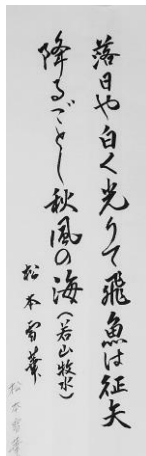 落日や白く光りて飛魚は征矢
降るごとし秋風の海(若山牧水)
松本雪華
松本雪華